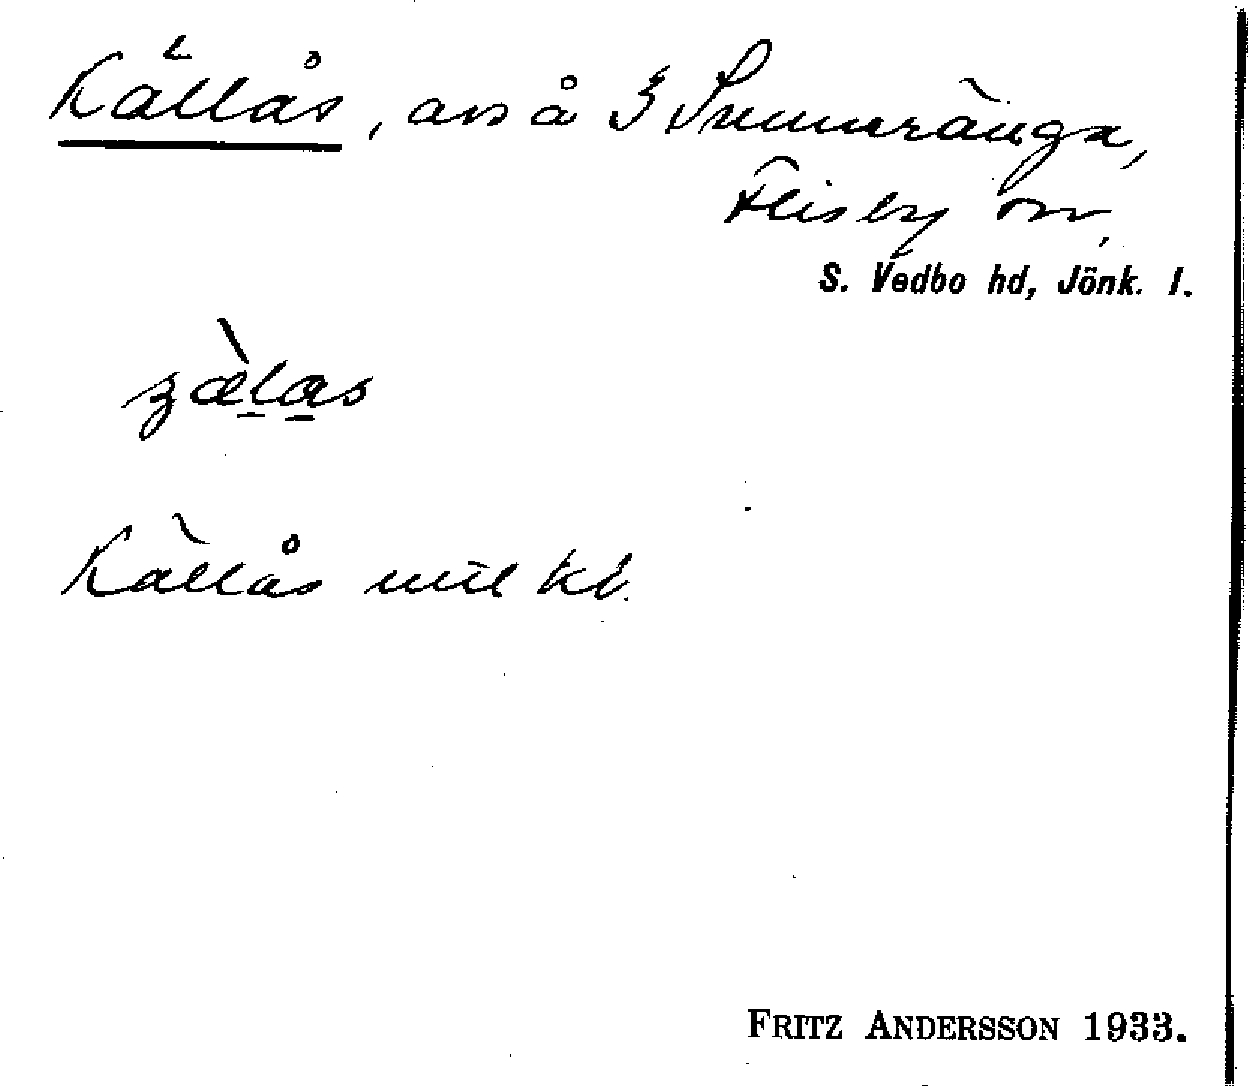 Källås, avs å 3 Sunneränga,
Flisby sn,
S. Vedbo hd, Jönk. l.
Källås mtl kb.
FRITZ ANDERSSON 1933.